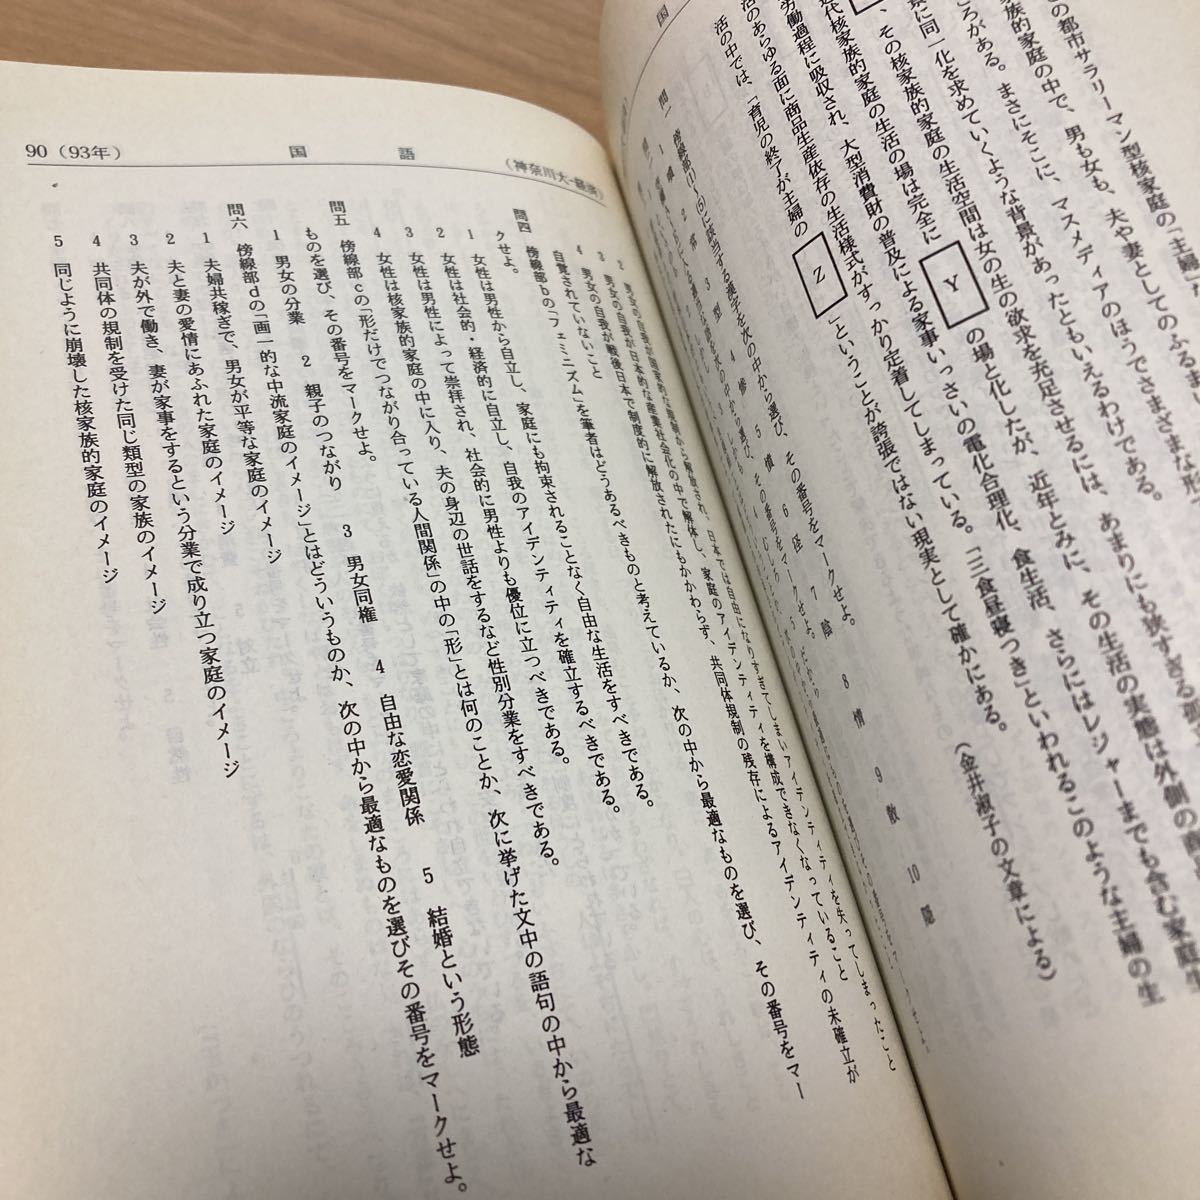 の都市サラリーマン型核家庭の「主婦
的家庭の中で、男も女も、夫や妻としてのふるま
ころがある。まさにそこに、マスメディアのほうでさまざまな形
景に同一化を求めていくような背景があったともいえるわけである。
、その核家族的家庭の生活空間は女の生の欲求を充足させるには、あまりにも狭すぎる
近代核家族的家庭の生活の場は完全に Y の場と化したが、近年とみに、その生活の実態は外側の商
労働過程に吸収され、大型消費財の普及による家事いっさいの電化合理化、食生活、さらにはレジャーまでも含む家庭生
活のあらゆる面に商品生産依存の生活様式がすっかり定着してしまっている。「三食昼寝つき」といわれるこのような主婦の生
活の中では、「育児の終了が主婦の Z 」ということが誇張ではない現実として確かにある。
(金井淑子の文章による)
国
問一 傍線部(1)〜(5)に該当する漢字を次の中から選び、その番号をマークせよ。
90(93年) 国 語 (神奈川大-経済)
2 男女の自我が国家的な規制から解放され、日本では自由になりすぎてしまいアイデンティティを失ってしまったこと
3 男女の自我が日本的な産業社会化の中で解体し、家庭のアイデンティティを構成できなくなっていること
4 男女の自我が戦後日本で制度的に解放されたにもかかわらず、共同体規制の残存によるアイデンティティの未確立が
自覚されていないこと
問四 傍線部bの「フェミニズム」を筆者はどうあるべきものと考えているか、次の中から最適なものを選び、その番号をマー
クせよ。
1 女性は男性から自立し、家庭にも拘束されることなく自由な生活をすべきである。
2 女性は社会的・経済的に自立し、自我のアイデンティティを確立するべきである。
3 女性は男性によって崇拝され、社会的に男性よりも優位に立つべきである。
4 女性は核家族的家庭の中に入り、夫の身辺の世話をするなど性別分業をすべきである。
問五 傍線部cの「形だけでつながり合っている人間関係」の中の「形」とは何のことか、次に挙げた文中の語句の中から最適な
ものを選び、その番号をマークせよ。
1 男女の分業 2 親子のつながり 3 男女同権 4 自由な恋愛関係 5 結婚という形態
問六 傍線部dの「画一的な中流家庭のイメージ」とはどういうものか、次の中から最適なものを選びその番号をマークせよ。
1 夫婦共稼ぎで、男女が平等な家庭のイメージ
2 夫と妻の愛情にあふれた家庭のイメージ
3 夫が外で働き、妻が家事をするという分業で成り立つ家庭のイメージ
4 共同体の規制を受けた同じ類型の家族のイメージ
5 同じように崩壊した核家族的家庭のイメージ